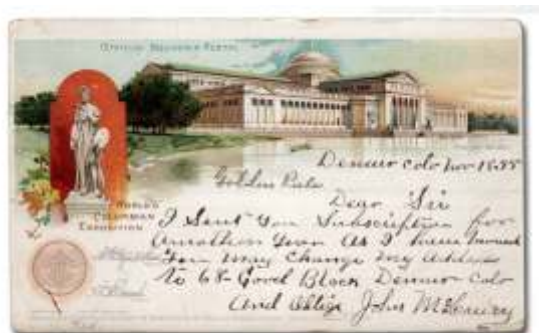 OFFICIAL SOUVENIR POSTAL
WORLD'S
COLUMBIAN
EXPOSITION
Denver Colo Nov
Golden Rule
Dear Sir
I Sent you Subscription for
Another Year As I have
You May Change My Address
to 68 Good Block Denver Colo
And Oblige John